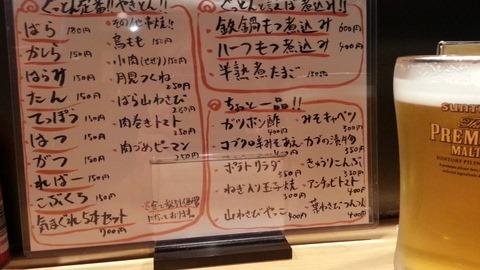 ぐっとん定番!! やきとん!!
ばら 180円
かしら 150円
はらみ 150円
たん 150円
てっぽう 150円
はつ 150円
がつ 150円
ればー 150円
こぶくろ 150円
気まぐれ5本セット
700円
その他串焼!!
鳥もも 150円
小肉(せせり) 150円
月見つくね
250円
ばら山わさび
260円
肉巻きトマト
250円
肉づめピーマン
250円
ぐっとんと言えば煮込み!!
鉄鍋もつ煮込み 600円
ハーフもつ煮込み 400円
半熟煮たまご 150円
ちょっと一品!!
ガツポン酢 400円
コブクロ辛みそあえ 400円
ポテトサラダ
ねぎ入り玉子焼
400円
山わさびやっこ
400円
みそキャベツ
300円
カブの漬物
350円
きゅうりこんぶ
350円
アンチョビトマト
400円
葉わさびつんつん
400円
SUNTORY
The
PREMIUM
MALT'S